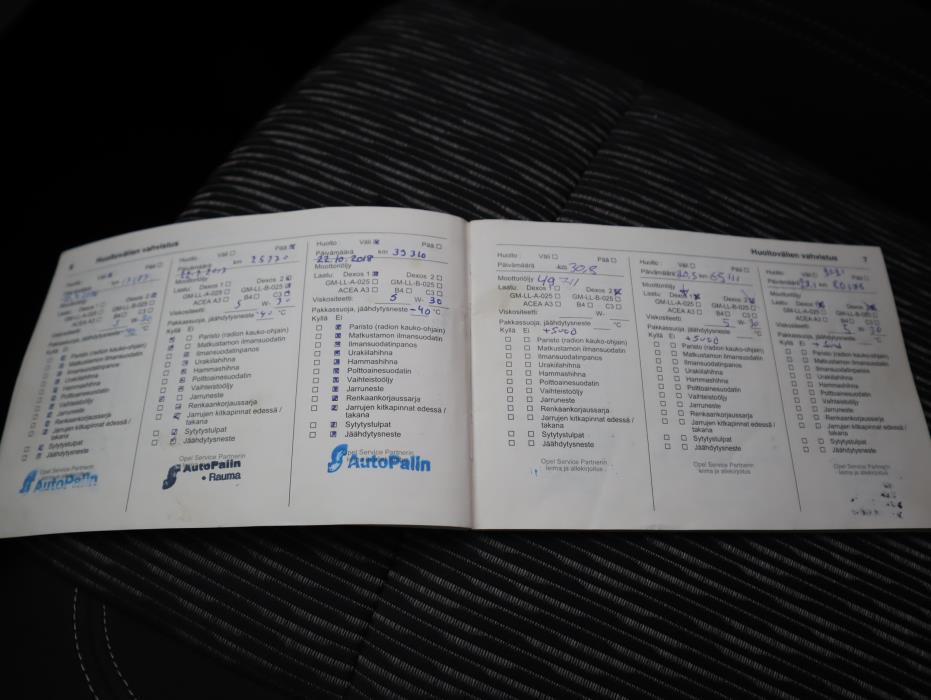 6 Huoltovälien vahvistus
Huolto: Väli Pää
km
Laatu: Dexos 1 Dexos 2
GM-LL-A-025 GM-LL-B-025
ACEA A3 B4 C3
Viskositeetti: 5 W- 30
Pakkassuoja, jäähdytysneste °C
Kyllä Ei
Paristo (radion kauko-ohjain)
Matkustamon ilmansuodatin
Ilmansuodatinpanos
Urakilahihna
Hammashihna
Polttoainesuodatin
Vaihteistoöljy
Jarruneste
Renkaankorjaussarja
Jarrujen kitkapinnat edessä /
takana
Sytytystulpat
Jäähdytysneste
Opel Service Partnerin
AutoPalin
Huolto: Väli Pää
Päivämäärä km
Moottoriöljy
Laatu: Dexos 1 Dexos 2
GM-LL-A-025 GM-LL-B-025
ACEA A3 B4 C3
Viskositeetti: 5 W- 30
Pakkassuoja, jäähdytysneste -40 °C
Kyllä Ei
Paristo (radion kauko-ohjain)
Matkustamon ilmansuodatin
Ilmansuodatinpanos
Urakilahihna
Hammashihna
Polttoainesuodatin
Vaihteistoöljy
Jarruneste
Renkaankorjaussarja
Jarrujen kitkapinnat edessä /
takana
Sytytystulpat
Jäähdytysneste
Opel Service Partnerin
AutoPalin
• Rauma
Huolto: Väli Pää
Päivämäärä km 39310
22.10.2018
Moottoriöljy
Laatu: Dexos 1 Dexos 2
GM-LL-A-025 GM-LL-B-025
ACEA A3 B4 C3
Viskositeetti: 5 W- 30
Pakkassuoja, jäähdytysneste -40 °C
Kyllä Ei
Paristo (radion kauko-ohjain)
Matkustamon ilmansuodatin
Ilmansuodatinpanos
Urakilahihna
Hammashihna
Polttoainesuodatin
Vaihteistoöljy
Jarruneste
Renkaankorjaussarja
Jarrujen kitkapinnat edessä /
takana
Sytytystulpat
Jäähdytysneste
Opel Service Partnerin
AutoPalin
Huoltovälien vahvistus 7
Huolto: Väli Pää
Päivämäärä km 30.8
Moottoriöljy 49711
Laatu: Dexos 1 Dexos 2
GM-LL-A-025 GM-LL-B-025
ACEA A3 B4 C3
Viskositeetti: W-
Pakkassuoja, jäähdytysneste °C
Kyllä Ei +5000
Paristo (radion kauko-ohjain)
Matkustamon ilmansuodatin
Ilmansuodatinpanos
Urakilahihna
Hammashihna
Polttoainesuodatin
Vaihteistoöljy
Jarruneste
Renkaankorjaussarja
Jarrujen kitkapinnat edessä /
takana
Sytytystulpat
Jäähdytysneste
Opel Service Partnerin
leima ja allekirjoitus
Huolto: Väli Pää
Päivämäärä km
Moottoriöljy
Laatu: Dexos 1 Dexos 2
GM-LL-A-025 GM-LL-B-025
ACEA A3 B4 C3
Viskositeetti: 5 W- 30
Pakkassuoja, jäähdytysneste °C
Kyllä Ei +5000
Paristo (radion kauko-ohjain)
Matkustamon ilmansuodatin
Ilmansuodatinpanos
Urakilahihna
Hammashihna
Polttoainesuodatin
Vaihteistoöljy
Jarruneste
Renkaankorjaussarja
Jarrujen kitkapinnat edessä /
takana
Sytytystulpat
Jäähdytysneste
Opel Service Partnerin
leima ja allekirjoitus
Huolto: Väli Pää
Päivämäärä km
Moottoriöljy
Laatu: Dexos 1 Dexos 2
GM-LL-A-025 GM-LL-B-025
ACEA A3 B4 C3
Viskositeetti: 5 W- 30
Pakkassuoja, jäähdytysneste °C
Kyllä Ei
Paristo (radion kauko-ohjain)
Matkustamon ilmansuodatin
Ilmansuodatinpanos
Urakilahihna
Hammashihna
Polttoainesuodatin
Vaihteistoöljy
Jarruneste
Renkaankorjaussarja
Jarrujen kitkapinnat edessä /
takana
Sytytystulpat
Jäähdytysneste
Opel Service Partnerin
leima ja allekirjoitus